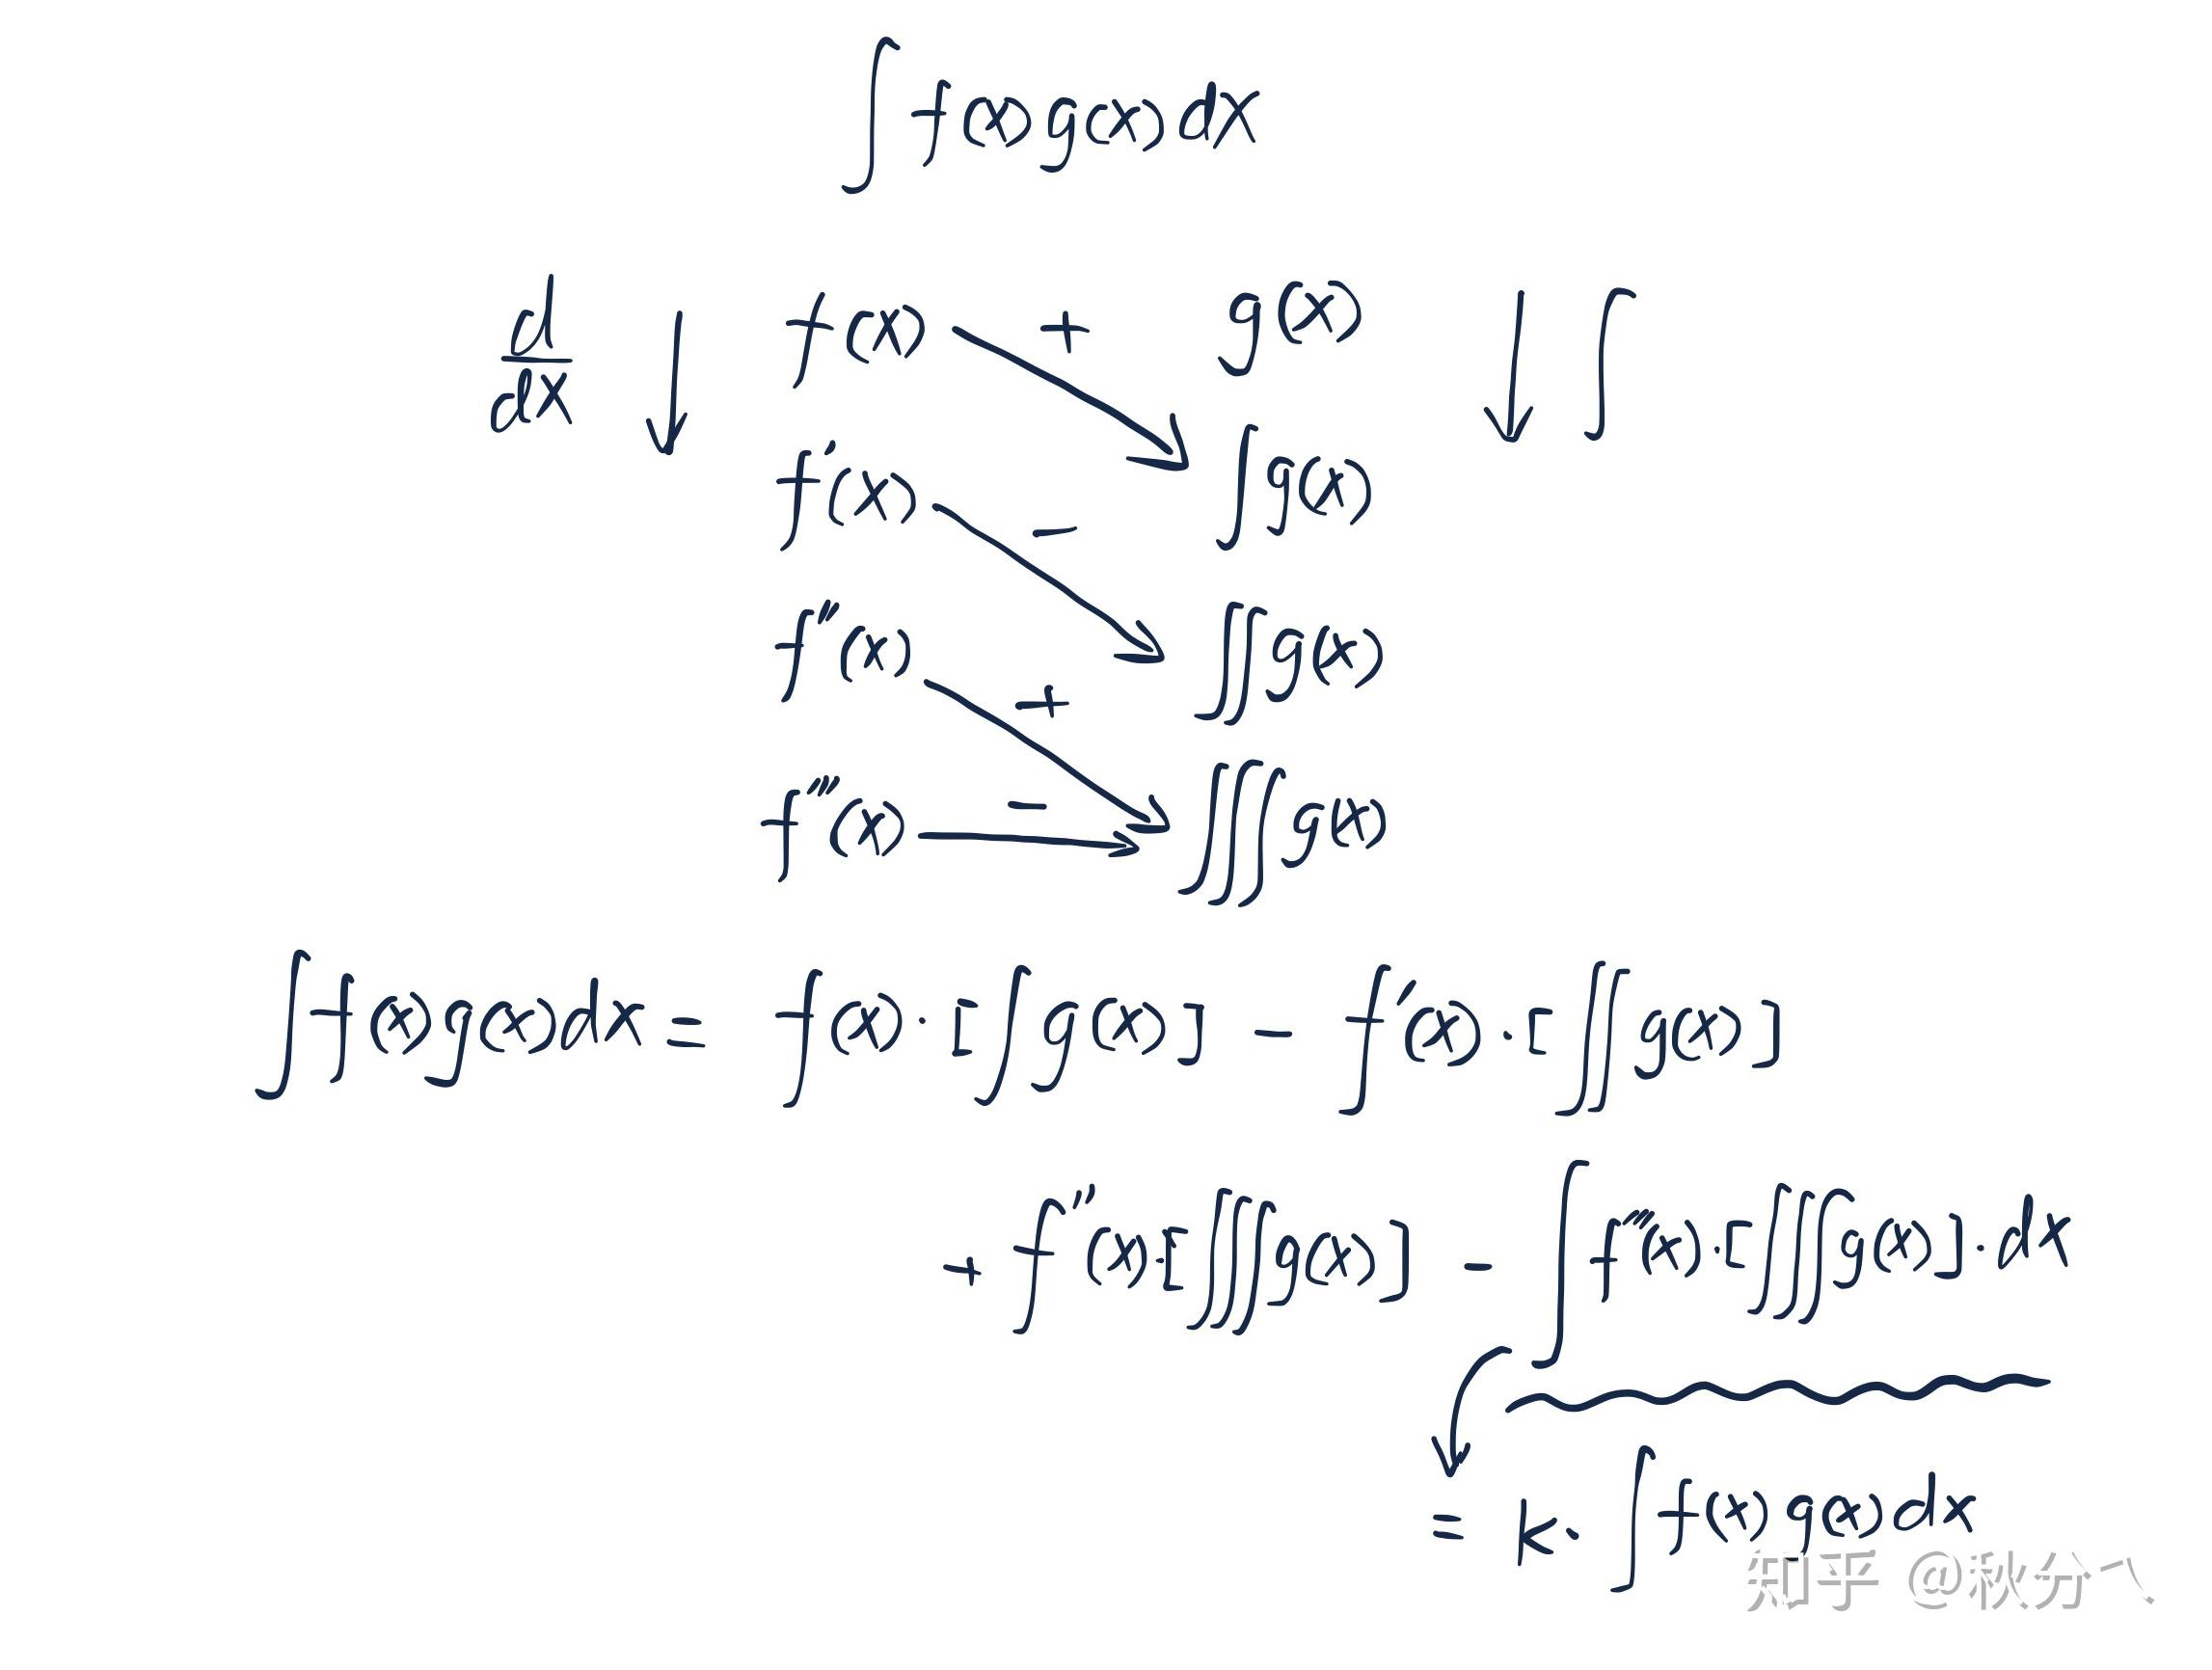 ∫ f(x) g(x) dx
d/dx ↓ f(x) + g(x) ↓ ∫
f'(x) − ∫g(x)
f''(x) + ∬g(x)
f'''(x) − ∭g(x)
∫f(x)g(x)dx = f(x)·[∫g(x)] − f'(x)·[∬g(x)]
+ f''(x)·[∭g(x)] − ∫f'''(x)·[∭g(x)]·dx
= k·∫f(x)g(x)dx
知乎 @秋分八